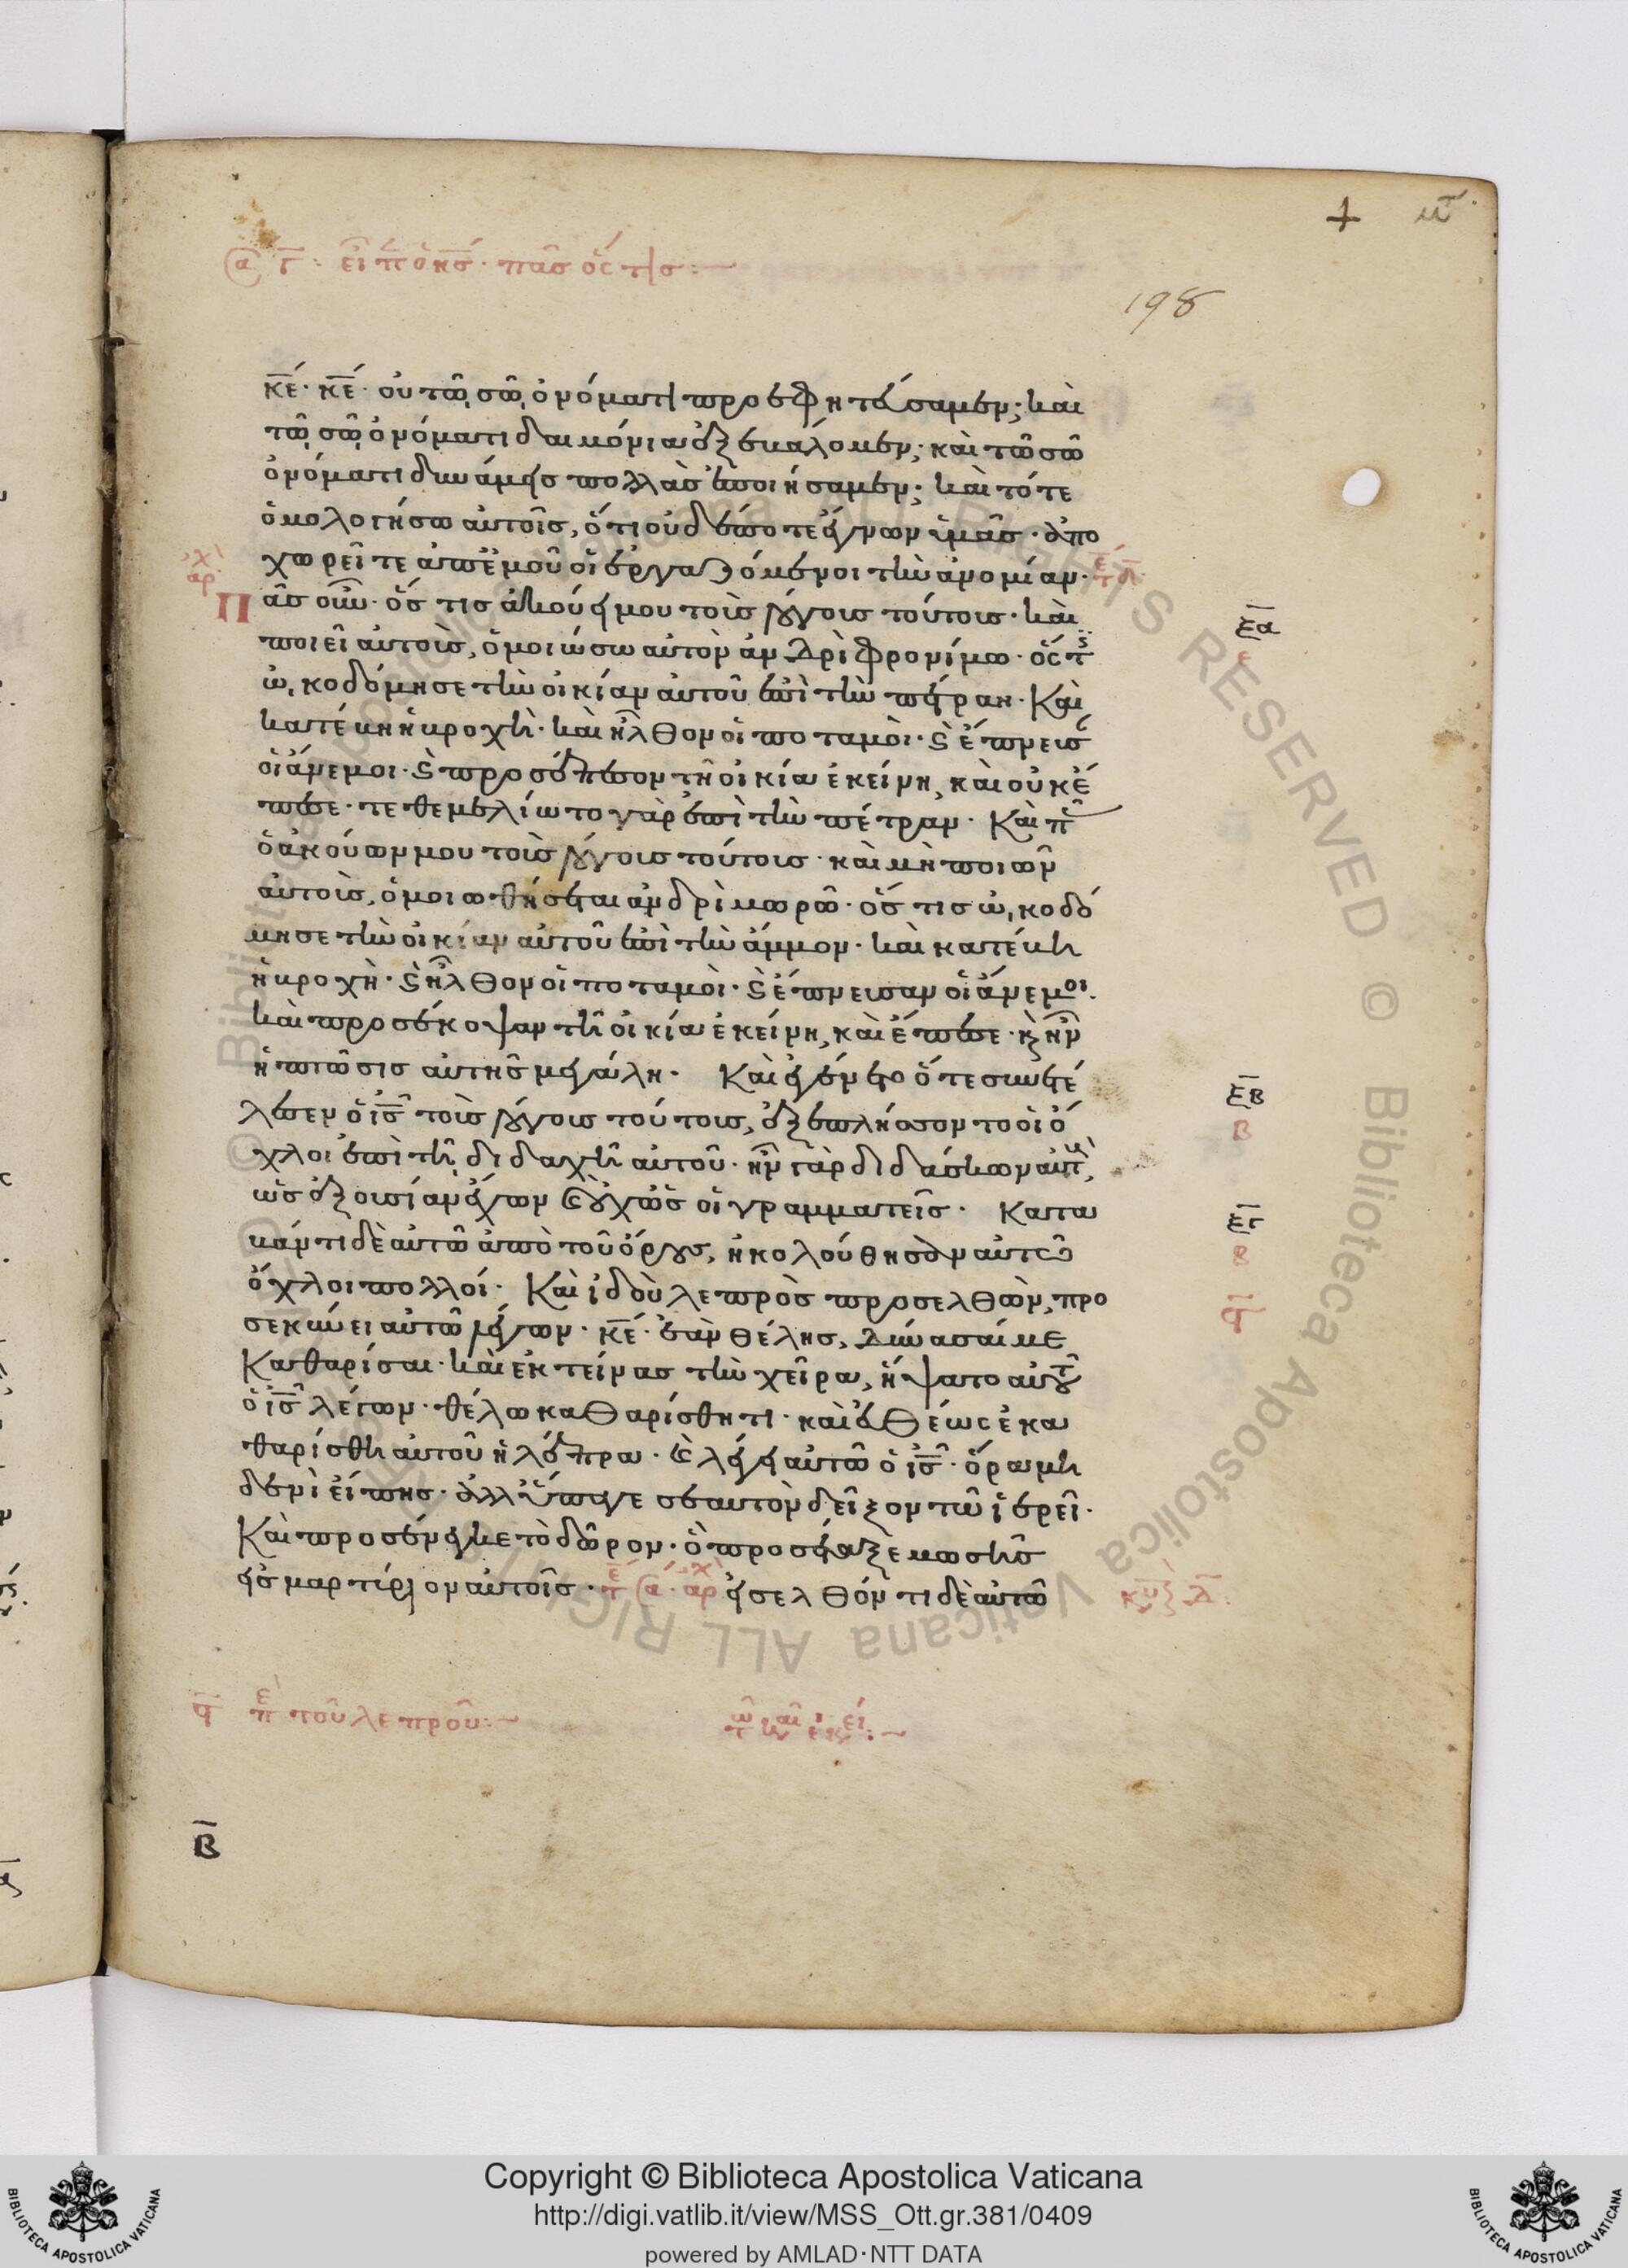 198
κε̅· κε̅· οὐ τῶ σῶ ὀνόματι προεφητεύσαμεν; καὶ
τῶ σῶ ὀνόματι δαιμόνια ἐξεκάλομεν; καὶ τῶ σῶ
ὀνόματι δυνάμεις πολλὰς ἐποιήσαμεν; καὶ τότε
ὁμολογήσω αὐτοῖς, ὅτι οὐδέποτε ἔγνων ὑμᾶς· ἀπο
χωρεῖτε ἀπ' ἐμοῦ οἱ ἐργαζόμενοι τὴν ἀνομίαν·
Πᾶς οὖν· ὅς τις ἀκούει μου τοὺς λόγοις τούτοις· καὶ
ποιεῖ αὐτοὺς, ὁμοιώσω αὐτὸν ἀνδρὶ φρονίμω· ὅςτ
ὠκοδόμησε τὴν οἰκίαν αὐτοῦ ἐπὶ τὴν πέτραν· Καὶ
κατέβη ἡ βροχὴ· καὶ ἦλθον οἱ ποταμοὶ· ϛ ἔπνευσ
οἱ ἄνεμοι· ϛ προσέπεσον τῆ οἰκία ἐκείνη, καὶ οὐκ ἔ
πεσε· τεθεμελίωτο γὰρ ἐπὶ τὴν πέτραν· Καὶ π
ὁ ἀκούων μου τοὺς λόγοις τούτοις· καὶ μὴ ποιῶν
αὐτοὺς, ὁμοιωθήσεται ἀνδρὶ μωρῶ· ὅς τις ὠκοδό
μησε τὴν οἰκίαν αὐτοῦ ἐπὶ τὴν ἄμμον· καὶ κατέβη
ἡ βροχὴ· ϛ ἦλθον οἱ ποταμοὶ· ϛ ἔπνευσαν οἱ ἄνεμοι·
καὶ προσέκοψαν τῆ οἰκία ἐκείνη, καὶ ἔπεσε· κ ἦν
ἡ πτῶσις αὐτῆς μεγάλη· Καὶ ἐγένετο ὅτε συνετέ
λεσεν ὁ ις̅ τοὺς λόγοις τούτοις, ἐξεπλήσσοντο οἱ ὄ
χλοι ἐπὶ τῆ διδαχῆ αὐτοῦ· ἦν γὰρ διδάσκων αὐτ,
ὡς ἐξουσίαν ἔχων ϛ οὐχ ὡς οἱ γραμματεῖς· Κατα
βάντι δὲ αὐτῶ ἀπὸ τοῦ ὄρους, ἠκολούθησαν αὐτῶ
ὄχλοι πολλοί· Καὶ ἰδοὺ λεπρὸς προσελθὼν, προ
σεκύνει αὐτῶ λέγων· κε̅· ἐὰν θέλης, δύνασαί με
Καθαρίσαι· καὶ ἐκτείνας τὴν χεῖρα, ἥψατο αὐτοῦ
ὁ ις̅ λέγων· θέλω καθαρίσθητι· καὶ εὐθέως ἐκα
θαρίσθη αὐτοῦ ἡ λέπρα· ϛ λέγει αὐτῶ ὁ ις̅· ὅρα μη
δενὶ εἴπης· ἀλλ' ὕπαγε σεαυτὸν δεῖξον τῶ ἱερεῖ·
Καὶ προσένεγκε τὸ δῶρον· ὃ προσέταξε μωσῆς
εἰς μαρτύριον αὐτοῖς· εἰσελθόντι δὲ αὐτῶ
ξα̅
ξβ̅
β
ξγ̅
τοῦ λεπροῦ:
β̅
Copyright © Biblioteca Apostolica Vaticana
http://digi.vatlib.it/view/MSS_Ott.gr.381/0409
powered by AMLAD·NTT DATA
BIBLIOTECA APOSTOLICA VATICANA
BIBLIOTECA APOSTOLICA VATICANA